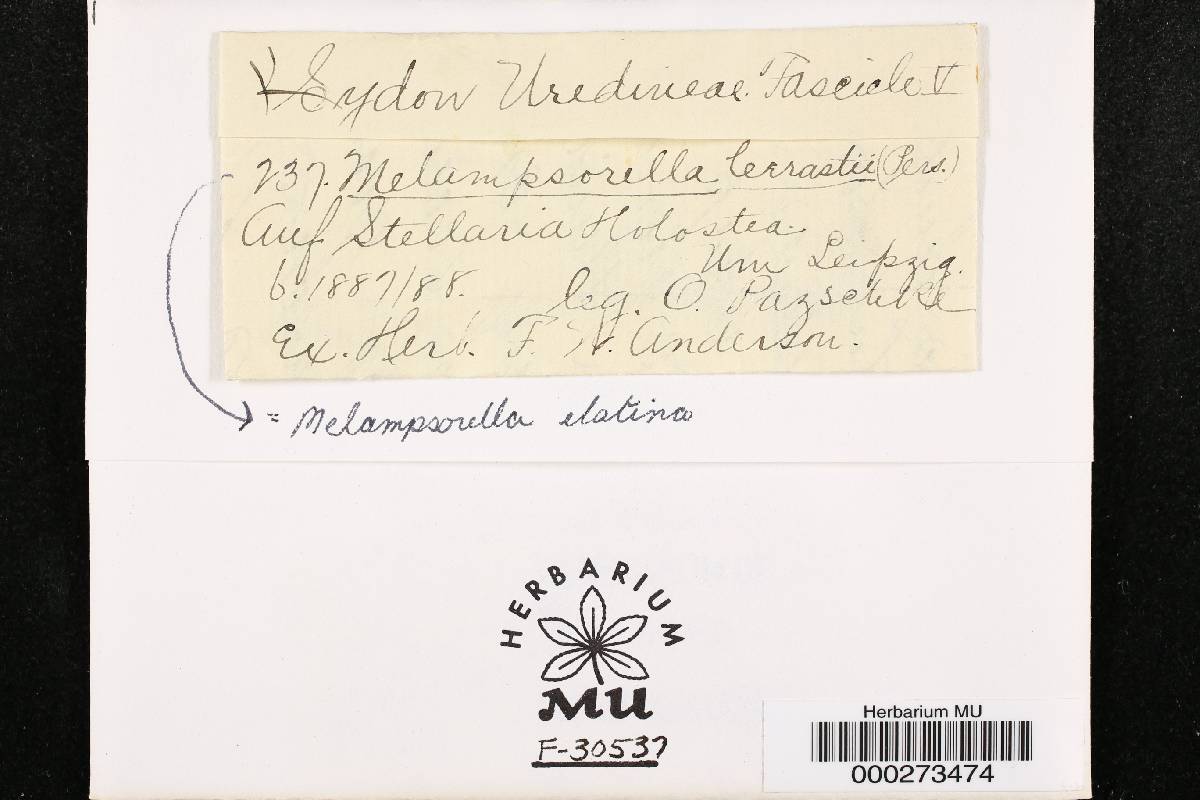 Sydow Uredineae. Fascicle V
237. Melampsorella Cerrastii (Pers.)
Auf Stellaria Holostea.
Um Leipzig.
6. 1887/88. leg. O. Pazschke
Ex. Herb. F. W. Anderson.
= Melampsorella elatina
HERBARIUM
MU
F-30537
Herbarium MU
000273474